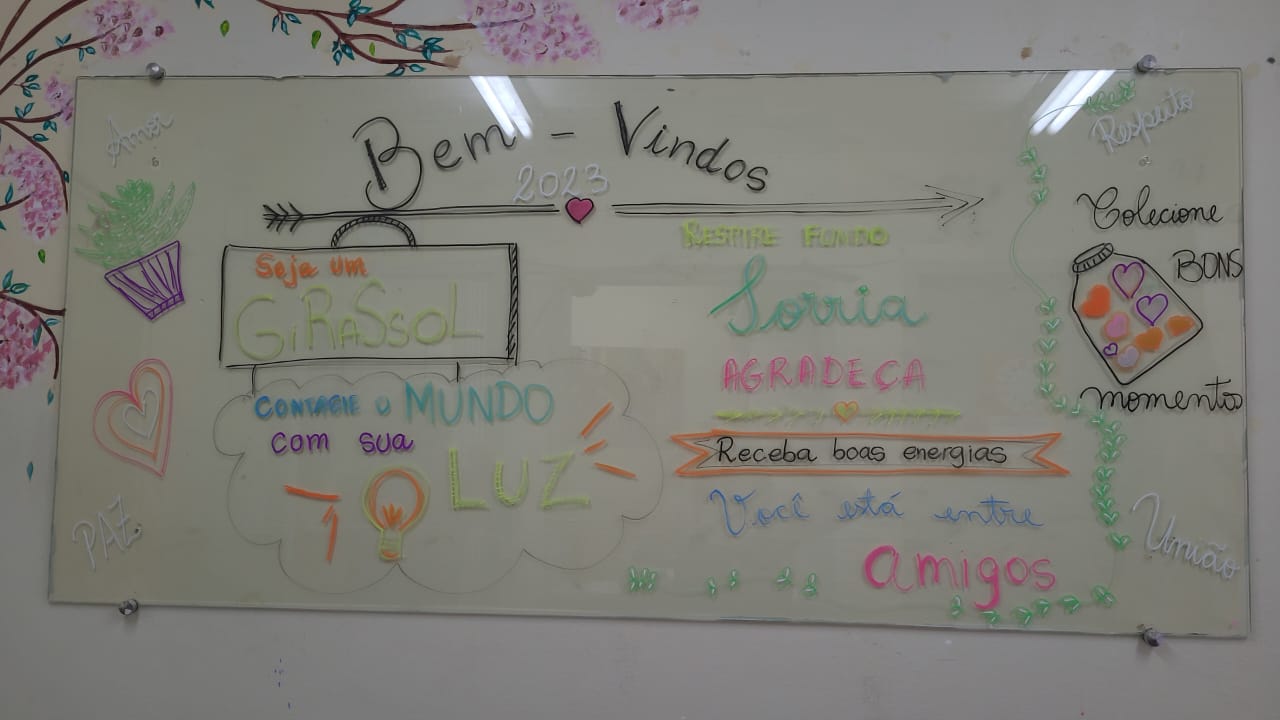 Amor
Bem - Vindos
2023
Respeito
Seja um
GiRASSOL
CONTAGIE o MUNDO
com sua
LUZ
RESPIRE FUNDO
Sorria
AGRADEÇA
Receba boas energias
Você está entre
amigos
Colecione
BONS
momentos
PAZ
União